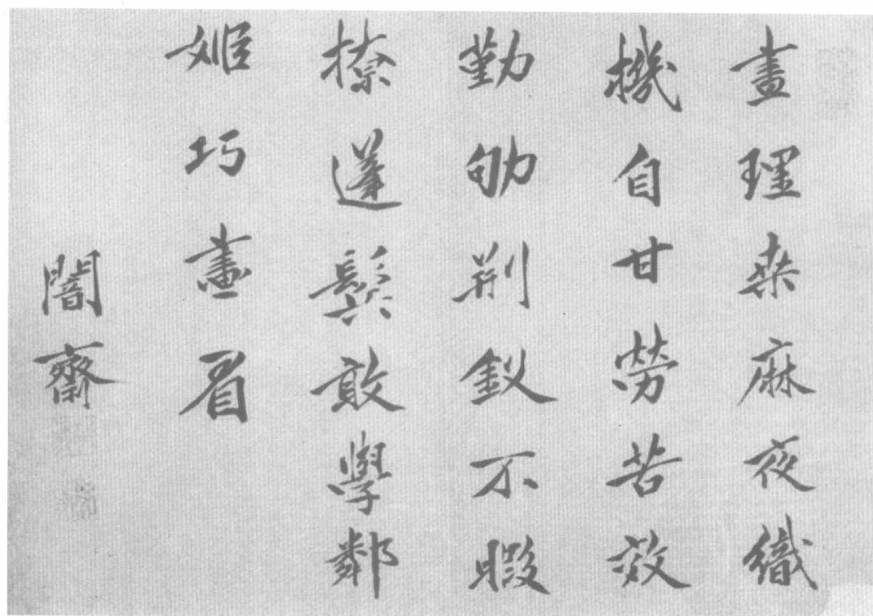 晝理桑麻夜織
機自甘勞苦效
勤劬荆釵不暇
撩蓬鬢敢學鄰
姬巧畫眉
闇齋